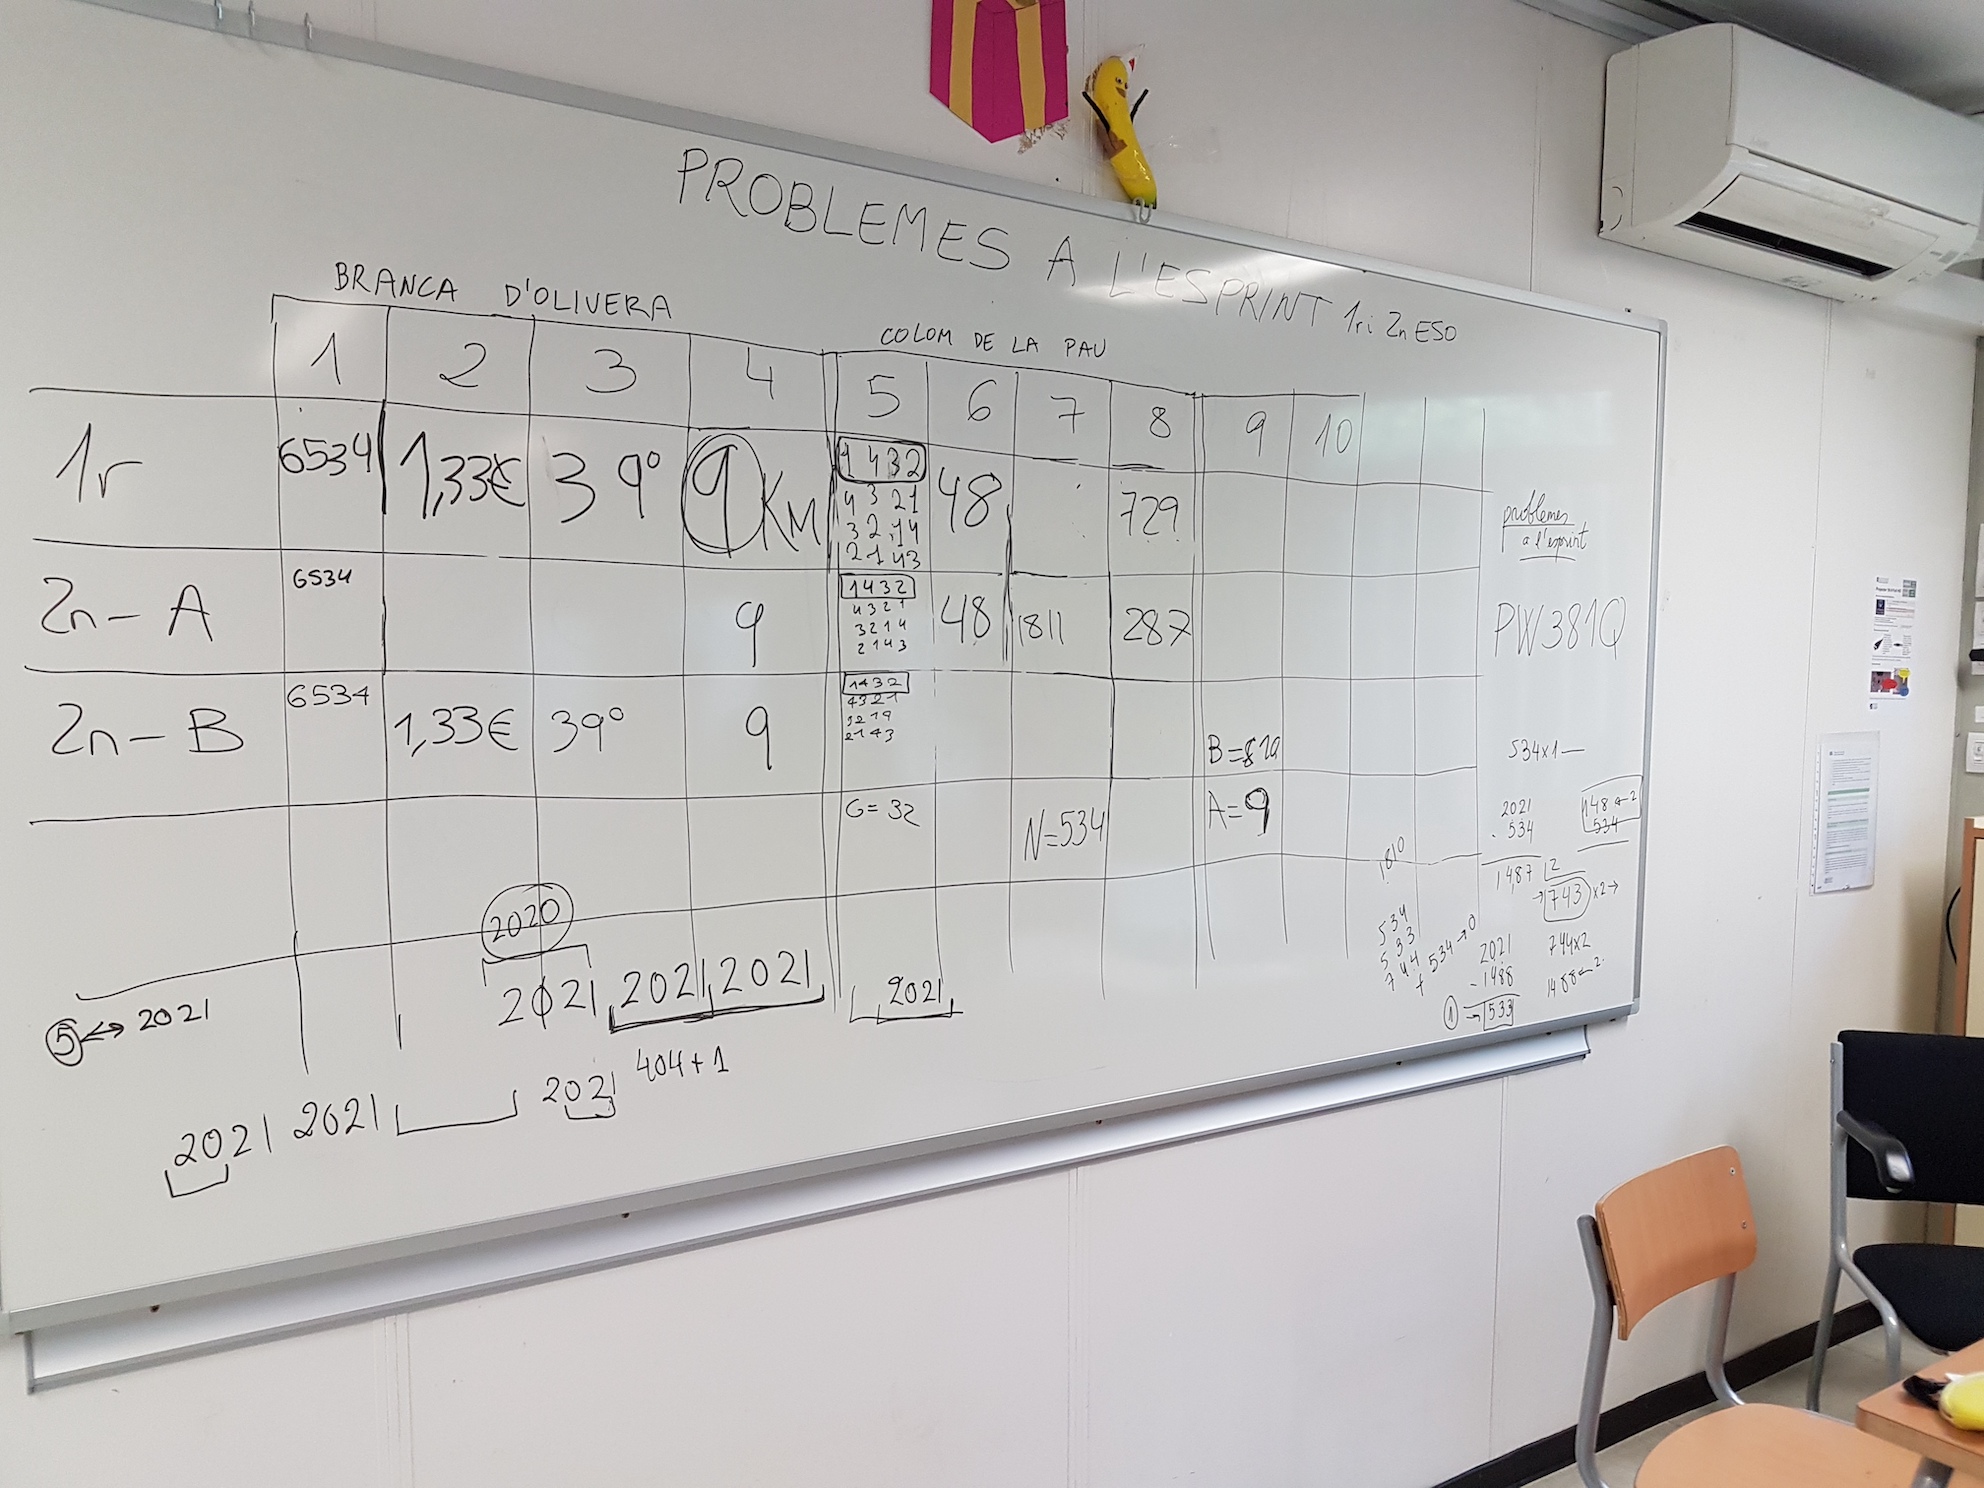 PROBLEMES A L'ESPRINT 1r i 2n ESO
BRANCA D'OLIVERA
COLOM DE LA PAU
1 2 3 4 5 6 7 8 9 10
1r 6534 1,33€ 39º 9 KM 1432 48 729
4321
3214
2143
2n-A 6534 9 1432 48 1811 287
4321
3214
2143
2n-B 6534 1,33€ 39º 9 1432 B=819
4321
3214
2143
G=32 N=534 A=9
2020
2021 2021 2021 2021
5 ↔ 2021
404+1
2021 2021 2021
problemes
a l'esprint
PW381Q
534x1—
2021
- 534
1487 |2
→743 x2→
148←2
534
1810
534
533
744
+534→0
2021
-1488
①→533
744x2
1488←2